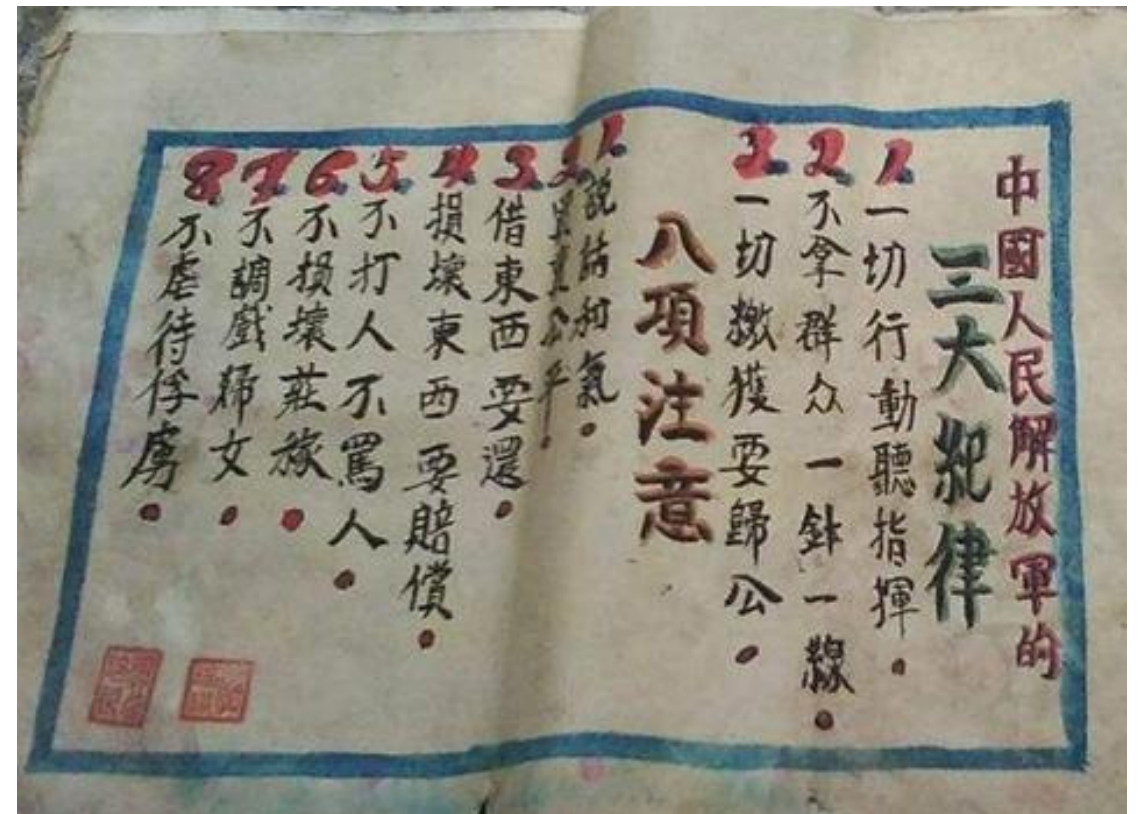 中國人民解放軍的
三大紀律
1. 一切行動聽指揮.
2. 不拿群众一針一線.
3. 一切繳獲要歸公.
八項注意
1. 説話和氣.
2. 買賣公平.
3. 借東西要還.
4. 損壞東西要賠償.
5. 不打人不罵人.
6. 不損壞莊稼.
7. 不調戲婦女.
8. 不虐待俘虜.